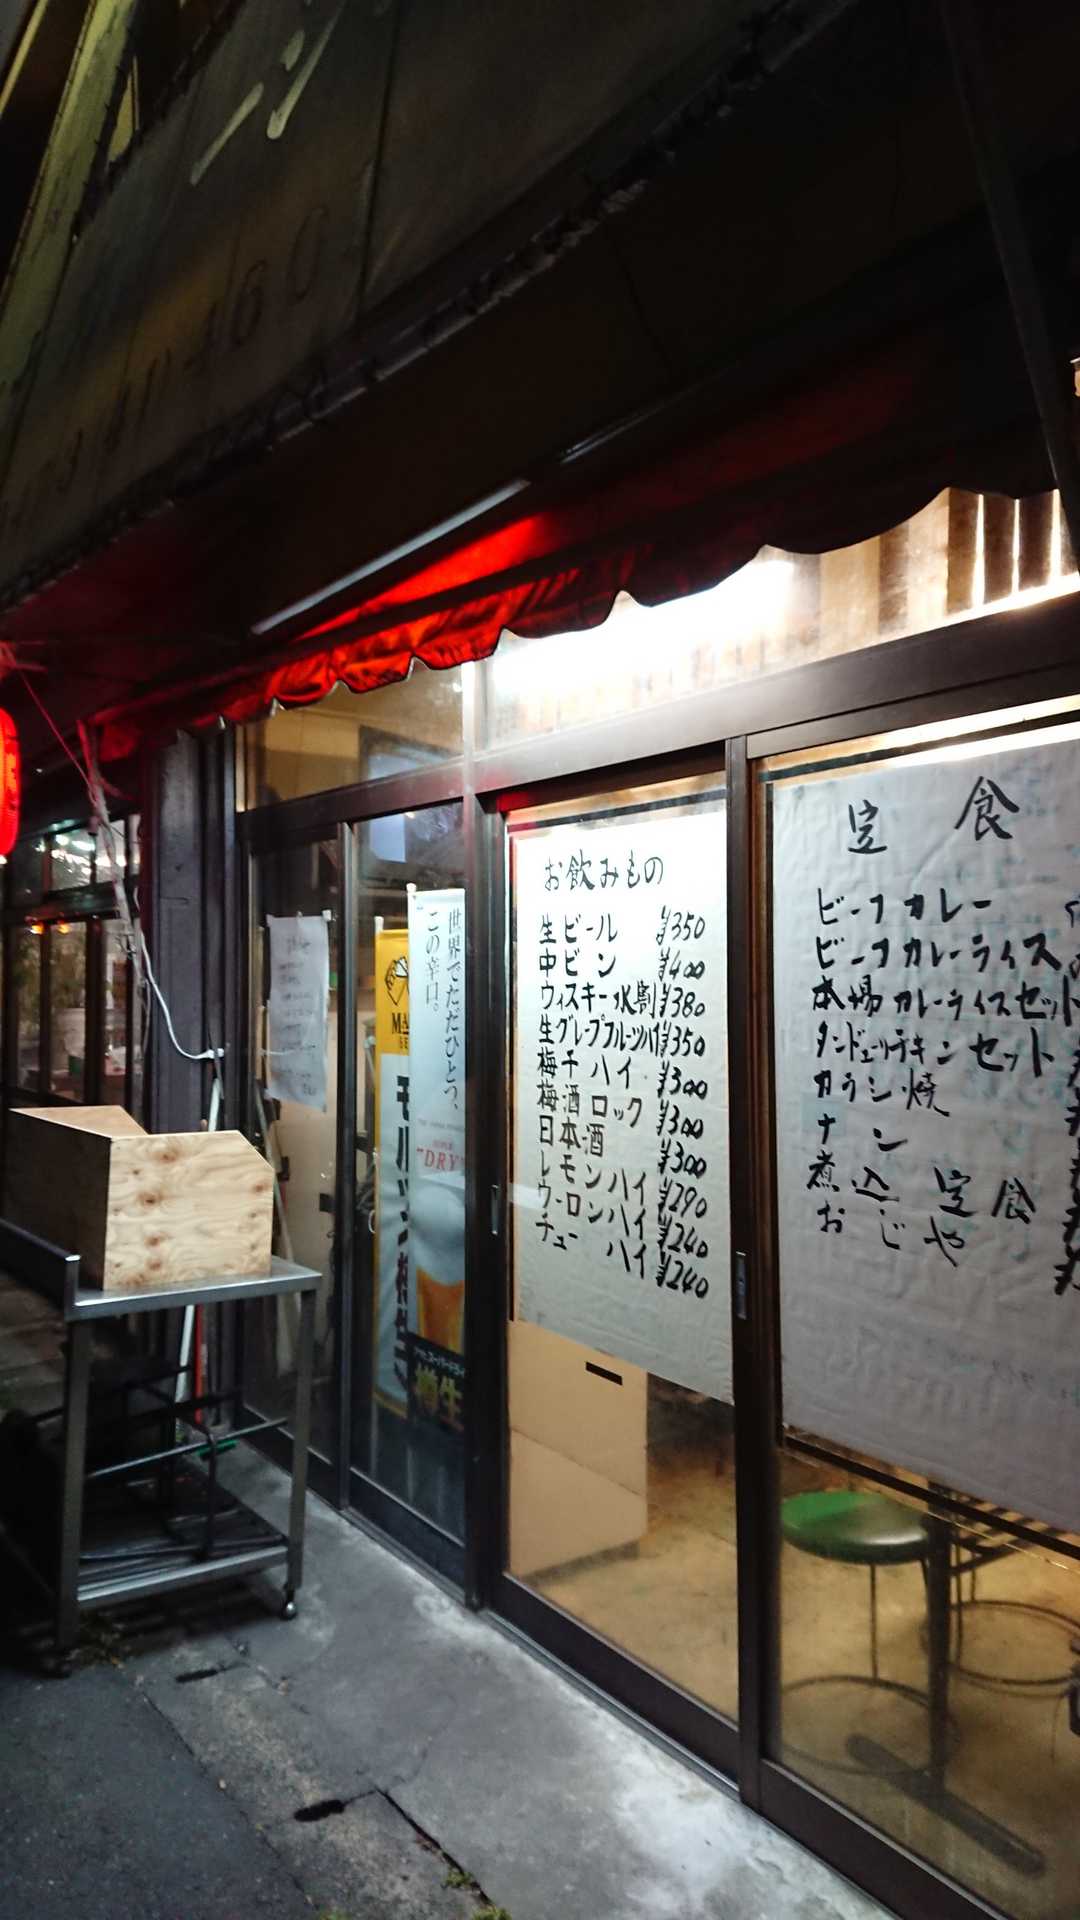 お飲みもの
生ビール ¥350
中ビン ¥400
ウィスキー水割 ¥380
生グレープフルーツハイ ¥350
梅干ハイ ¥300
梅酒ロック ¥300
日本酒 ¥300
レモンハイ ¥290
ウーロンハイ ¥240
チューハイ ¥240
定食
ビーフカレー
ビーフカレーライス
本場カレーライスセット
タンドェリーチキンセット
カラシ焼
ナン
煮込定食
おじや
世界でただひとつ、
この辛口。
"DRY"
樽生
モルツ